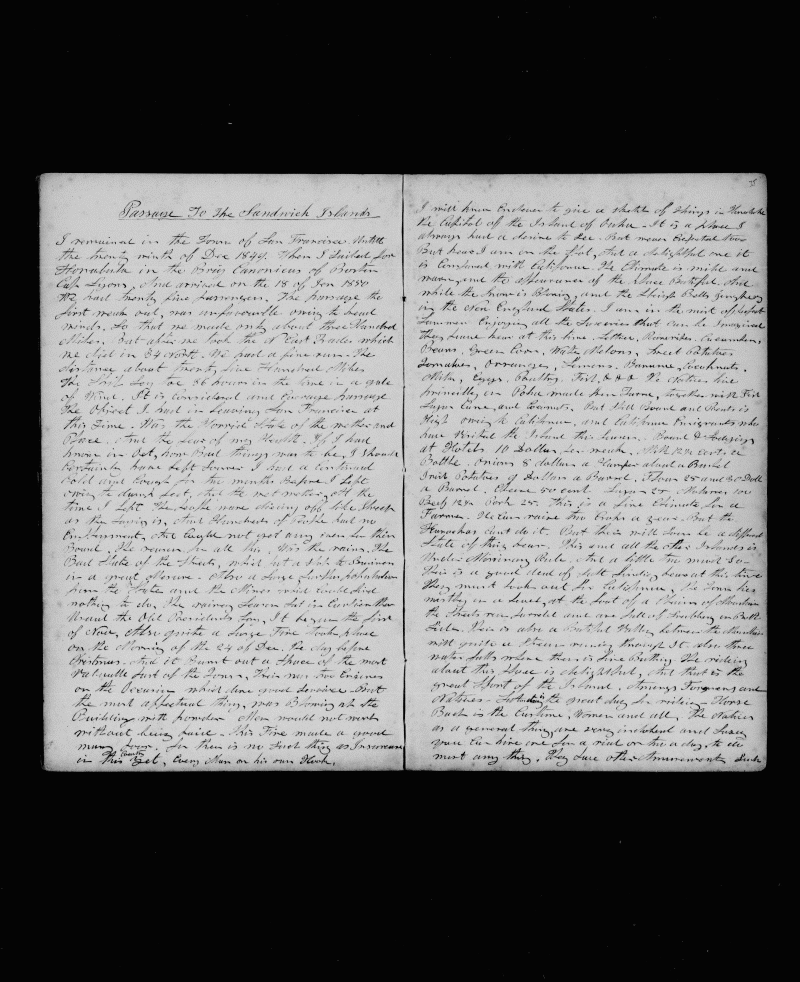 Passage To The Sandwich Islands
I remained in the Town of San Francisco. Untill
the twenty ninth of Dec 1849. Then I Sailed for
Honalulu in the Brig Canonicus of Boston
Capt Lyons, And arrived on the 18 of Jan 1850
We had twenty five passengers. The passage the
first week out, was unfavourable owing to head
winds. So that we made only about three Hundred
Miles. But after we took the N East Trades which
we did in 24 North. We had a fine run. The
distance about twenty five Hundred Miles
The Ship Lay too 36 hours in the time in a gale
of Wind. It is considered and average passage
The Object I had in Leaving San Francisco at
this Time. Was the Horrid State of the wether and
Place. And the fear of my Health. If I had
known in Oct, how Bad things was to be, I should
certainly have left Sooner I had a continued
Cold and Cough for two months Before I left
owing to damp feet, and the wet wether. At the
time I left The People were dieing off like Sheep
as the Saying is. And Hundreds of People had no
Employment, And Could not get any even for their
Board. The reason for all this, Was the rains, The
Bad State of the Streets, which put a Stop to Buisiness
in a great Measure. Also a Large Surplus population
from the States and the Mines which could find
nothing to do, The rainey Season Set in Earlier than
Usual the Old Residents Say, It began the first
of Nov, Also quite a Large Fire Took place
on the Morning of the 24 of Dec. The day before
Christmas. And it Burnt out a Space of the most
Valuable Part of the Town, Their was two Engines
on the Occasion which done good Service. But
the most affectual thing, was Blowing up the
Buildings with powder Men would not work
without being paid. This Fire made a good
many poor, for their is no Such thing as Insurance
in this Country yet, Every Man on his own Hook.
78
I will know Endever to give a sketch of things in Honolulu
the Capital off the Island of Oahu. It is a place I
always had a desire to See. But never Expected too
But hear I am on the spot, And a delightfull one it
is Compared with California The Climate is mild and
warm, and the appearance of the place Butiful. And
while the snow is Blowing, and the Sleigh Bells Gingling
in the New England States. I am in the mist of perfect
Summer Enjoying all the Luxeries that can be Imagined
They have hear at this time, Lettuce, Cucumbers,
Beans, Green Corn, Water Melons, Sweet Potatoes
Tomatoes, Orranges, Lemons, Banana, Cocoanuts,
Milk, Eggs, Poultry. Fish, &&& The Natives live
princibly on Poha made from Tarro, together with Fish
Sugar Cane, and Cocanuts. But Still Board and Rents is
High owing to California, and California Emigrants who
have Visited the Island this Season. Board & Lodging
at Hotels 10 Dollars per week, Milk 12½ cents a
Bottle. Onions 8 dollars a Hamper about a Bushel
Irish Potatoes 9 Dollars a Barrel, Flour 25 and 30 Dolls
a Barrel. Cheese 50 cent. Sugar 25 Molasses
Beef 12½ Pork 25. This is a fine Climate for a
Farmer. He can raise two Crops a year. But the
Kanackas cant do it. But their will soon be a different
State of things hear. This and all the other Islands is
Under Missionary Rule, And a little too much So.
Their is a good deal of Salt hear at this time
They must look out for California, The Town lies
mostly on a level, at the foot of a Chain of Mountains
the Streets run parrelel and are full of Shrubbery on Both
Sides. Their is also a Butiful Valley between the Mountains
with quite a Stream running through It. also three
water falls where their is fine Bathing. The rideing
about this place is delightfull, And that is the
great Sport of the Island, Amongs Foreigners and
Natives. Saturday the great day for rideing Horse
Back is the Custom, Women and all, The Natives
as a general thing are very indolent and Lasey
you Can hire one for a real or two a day, to do
most any thing, they have other Amusements Such